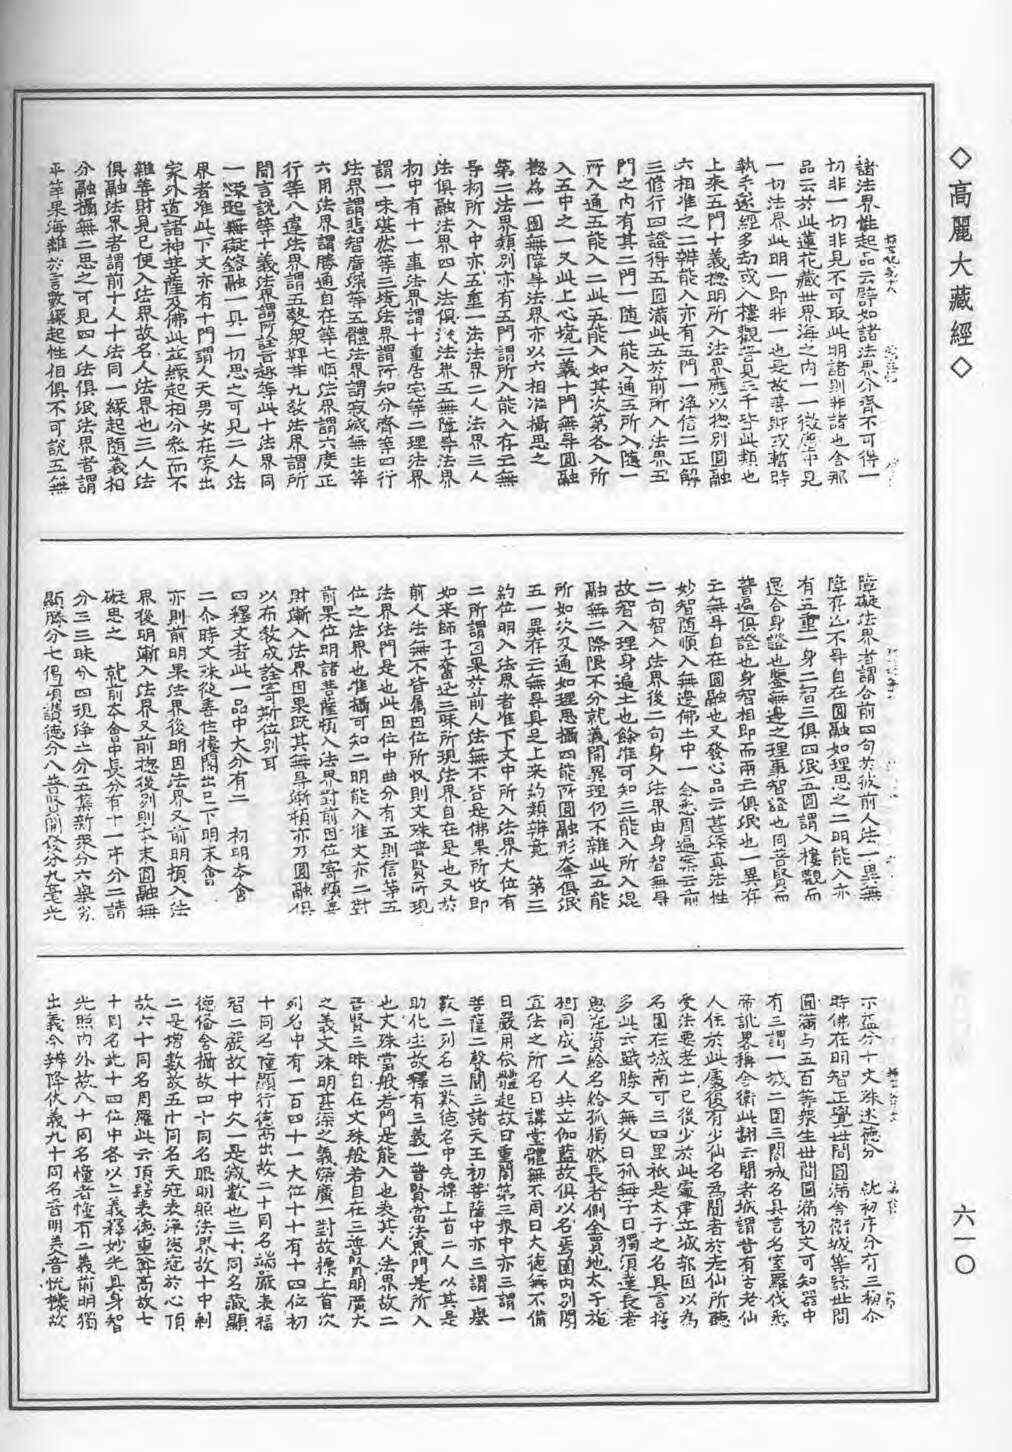 諸法界性起品云辟如諸法界分齊不可得一
切非一切非見不可取此明諸則非諸也舍那
品云於此蓮花藏世界海之內一一微塵中見
一切法界此明一即非一也是故善財或暫時
執手遂經多劫或入樓觀普見三千皆此類也
上來五門十義揔明所入法界應以揔別圓融
六相准之二辨能入亦有五門一淨信二正解
三修行四證得五圓滿此五於前所入法界五
門之內有其二門一随一能入通五所入随一
所入通五能入二此五能入如其次第各入所
入五中之一又此上心境二義十門無㝵圓融
揔為一團無障㝵法界亦以六相准攝思之
第二法界類別亦有五門謂所入能入存亡無
㝵初所入中亦五重一法法界二人法界三人
法俱融法界四人法俱泯法界五無障㝵法界
初中有十一事法界謂十重居宅等二理法界
謂一味湛然等三境法界謂所知分齊等四行
法界謂悲智廣深等五體法界謂寂滅無生等
六用法界謂勝通自在等七順法界謂六度正
行等八違法界謂五熱衆鞞等九教法界謂所
聞言說等十義法界謂所詮旨趣等此十法界同
一緣起無礙鎔融一具一切思之可見二人法
界者准此下文亦有十門謂人天男女在家出
家外道諸神菩薩及佛此並緣起相分叅而不
雜善財見已便入法界故名人法界也三人法
俱融法界者謂前十人十法同一緣起随義相
分融攝無二思之可見四人法俱泯法界者謂
平等果海離於言數緣起性相俱不可說五無
障礙法界者謂合前四句於彼前人法一異無
障存亡不㝵自在圓融如理思之二明能入亦
有五重一身二智三俱四泯五圓謂入樓觀而
還合身證也鑒無邊之理事智證也同普賢而
普遍俱證也身智相即而兩亡俱泯也一異存
亡無㝵自在圓融也又發心品云甚深真法性
妙智随順入無邊佛土中一念悉周遍案云前
二句智入法界後二句身入法界由身智無㝵
故智入理身遍土也餘准可知三能入所入混
融無二際限不分就義開異理仍不雜此五能
所如次及通如理思攝四能所圓融形奪俱泯
五一異存亡無㝵具足上來約類辨竟　第三
約位明入法界者准下文中所入法界大位有
二所謂因果於前人法無不皆是佛果所收即
如來師子奮迅三昧所現法界自在是也又於
前人法無不皆屬因位所收則文殊普賢所現
法界法門是也此因位中曲分有五則信等五
位之法界也准攝可知二明能入准文亦二對
前果位明諸菩薩頓入法界對前因位寄顯善
財漸入法界因果既其無㝵漸頓亦乃圓融俱
以布教成詮寄斯位別耳
四釋文者此一品中大分有二　初明本會
二尒時文殊從善住樓閣出已下明末會
亦則前明果法界後明因法界又前明頓入法
界後明漸入法界又前揔後別則本末圓融無
礙思之　就前本會中長分有十一序分二請
分三三昧分四現淨土分五集新衆分六舉劣
顯勝分七偈頌讚德分八普賢開發分九毫光
示益分十文殊述德分　就初序分有三初尒
時佛在明智正覺世間圓滿舍衛城等器世間
圓滿与五百等衆生世間圓滿初文可知器中
有三謂一城二園三閣城名具言名室羅伐悉
帝訛畧稱舍衛此翻云聞者城謂昔有古老仙
人住於此處後有少仙名為聞者於老仙所聽
受法要老亡已後少於此處建立城郭因以為
名園在城南可三四里祇是太子之名具言祇
多此云戰勝又無父曰孤無子曰獨須達長者
恩流資給名給孤獨然長者側金買地太子施
樹同成二人共立伽藍故俱以名焉園內別閣
宣法之所名曰講堂體無不周曰大德無不備
曰嚴用依體起故曰重閣第三衆中亦三謂一
菩薩二聲聞三諸天王初菩薩中亦三謂一舉
數二列名三歎德名中先標上首二人以其是
助化主故釋有三義一普賢當法界門是所入
也文殊當般若門是能入也表其人法界故二
普賢三昧自在文殊般若自在三普賢明廣大
之義文殊明甚深之義深廣一對故標上首次
列名中有一百四十一大位十十有十四位初
十同名幢顯行德高出故二十同名端嚴表福
智二嚴故十中欠一是減數也三十同名藏顯
德俻含攝故四十同名眼明照法界故十中剩
二是增數故五十同名天冠表淨德冠於心頂
故六十同名周羅此云頂髻表德重尊高故七
十同名光此十四位中各以二義釋妙光具身智
光照內外故八十同名幢者幢有二義前明獨
出義今辨降伏義九十同名音明美音悅機故
◇高麗大藏經◇
六一〇